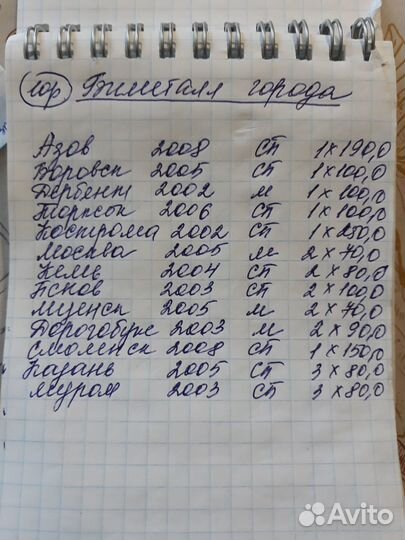 10р Биметалл города
Азов 2008 СП 1 х 190,0
Боровск 2005 СП 1 х 100,0
Дербент 2002 м 1 х 100,0
Торжок 2006 СП 1 х 100,0
Кострома 2002 СП 1 х 250,0
Москва 2005 м 2 х 70,0
Кемь 2004 СП 2 х 80,0
Псков 2003 СП 2 х 100,0
Мценск 2005 м 2 х 70,0
Дорогобуж 2003 м 2 х 90,0
Смоленск 2008 СП 1 х 150,0
Казань 2005 СП 3 х 80,0
Муром 2003 СП 3 х 80,0
Avito